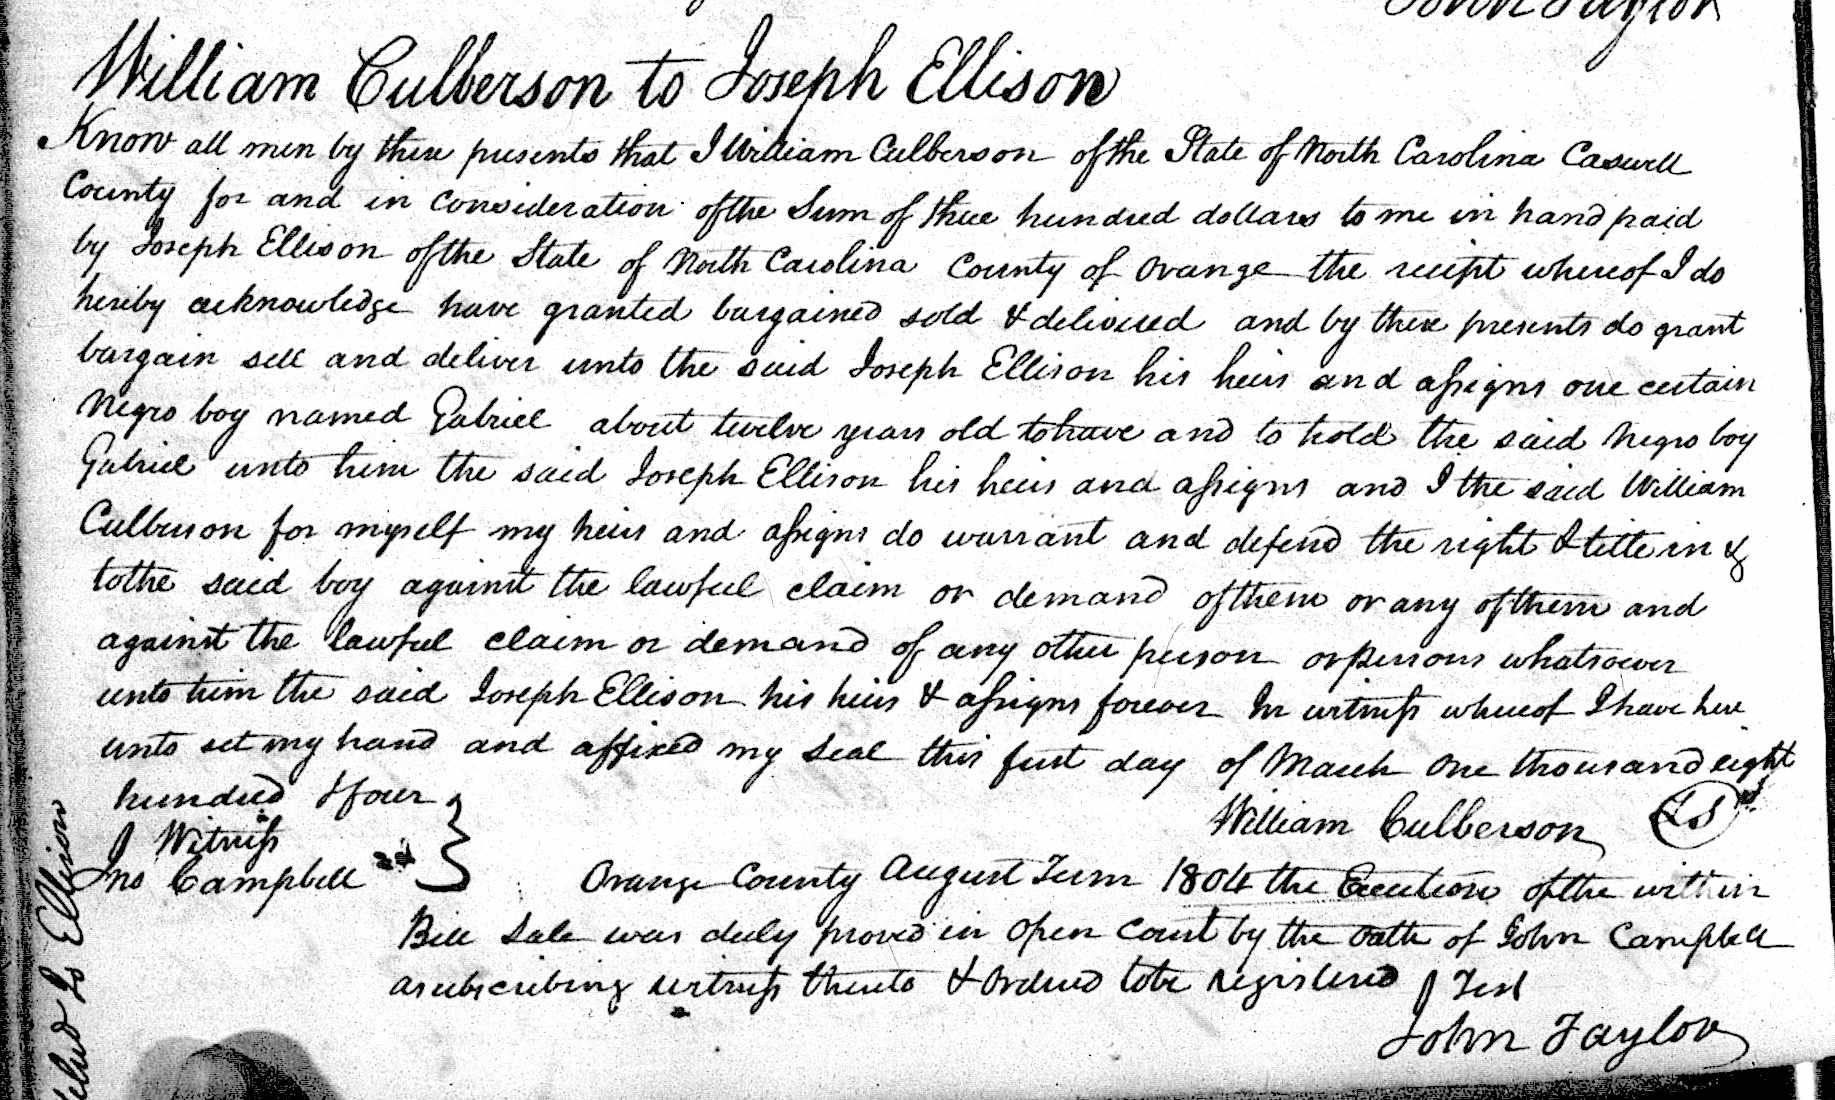 John Taylor
William Culberson to Joseph Ellison
Know all men by these presents that I William Culberson of the State of North Carolina Caswell
County for and in consideration of the Sum of three hundred dollars to me in hand paid
by Joseph Ellison of the State of North Carolina County of Orange the receipt whereof I do
hereby acknowledge have granted bargained sold & delivered and by these presents do grant
bargain sell and deliver unto the said Joseph Ellison his heirs and assigns one certain
Negro boy named Gabriel about twelve years old to have and to hold the said Negro boy
Gabriel unto him the said Joseph Ellison his heirs and assigns and I the said William
Culberson for myself my heirs and assigns do warrant and defend the right & title in &
to the said boy against the lawful claim or demand of them or any of them and
against the lawful claim or demand of any other person or persons whatsoever
unto him the said Joseph Ellison his heirs & assigns forever In witness whereof I have here
unto set my hand and affixed my Seal this first day of March One thousand eight
hundred & four
William Culberson LS
Witness
Jno Campbell
Orange County August Term 1804 the Execution of the within
Bill Sale was duly proved in Open Court by the oath of John Campbell
a subscribing witness thereto & Ordered to be registered Test
John Taylor
to Ellison